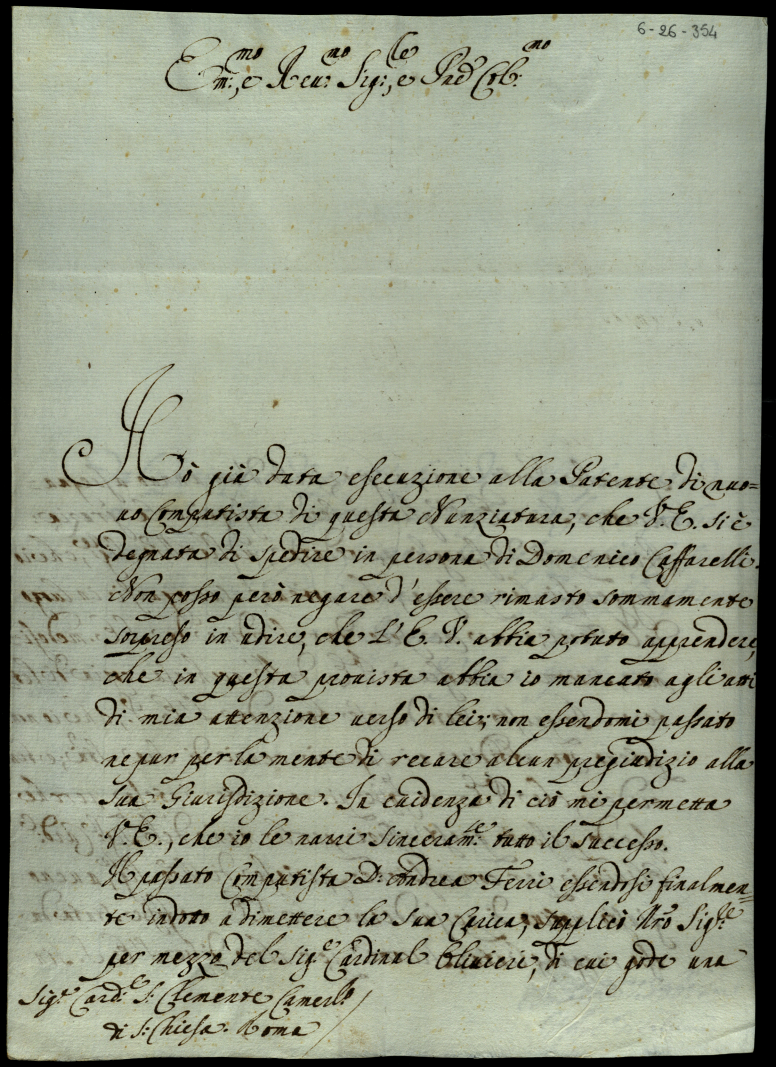 6-26-354
Em:mo, e Reu:mo Sig:re, e Pad Col:mo
Hò già data esecuzione alla Patente di nuo=
uo Computista di questa Nunziatura, che V. E. si è
degnata di spedire in persona di Domenico Caffarelli.
Non posso però negare d'essere rimasto sommamente
sorpreso in udire, che l'E. V. abbia potuto apprendere,
che in questa prouista abbia io mancato agli atti
di mia attenzione uerso di lei; non essendomi passato
nepur per la mente di recare alcun pregiudizio alla
sua Giurisdizione. In euidenza di ciò mi permetta
V. E., che io le narri sinceram:te tutto il successo.
Il passato Computista D: Andrea Ferri essendosi finalmen=
te indotto à dimettere la sua Carica, supplicò Nro Sig:re
per mezzo del Sig:e Cardinal Oliuieri, di cui gode una
Sig:e Card:e S: Clemente Camerlo
di S: Chiesa. Roma